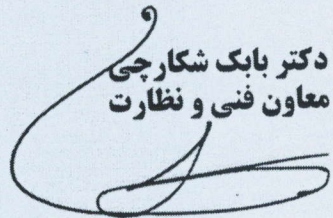 دکتر بابک شکارچی
معاون فنی و نظارت